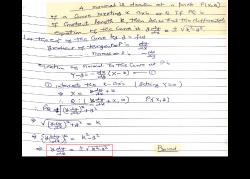 A normal is drawn at a point P(x,y)
of a curve meeting x-axis at Q. If PQ is
of constant length k, then show that the differential
equation of the curve is y dy/dx = ± √k²-y²
the eqⁿ of the curve be y = f(x)
gradient of tangent at P is dy/dx
normal at P is
equation of normal to the curve at P is
(X-x) — ①
① intersects the x-axis (setting Y=0)
⇒ X = y dy/dx + x
∴ Q: (y dy/dx + x, 0) P(x,y)
⇒ √(y dy/dx)² + y² = k
⇒ (y dy/dx)² = k² - y²
⇒ y dy/dx = ± √k²-y² Proved